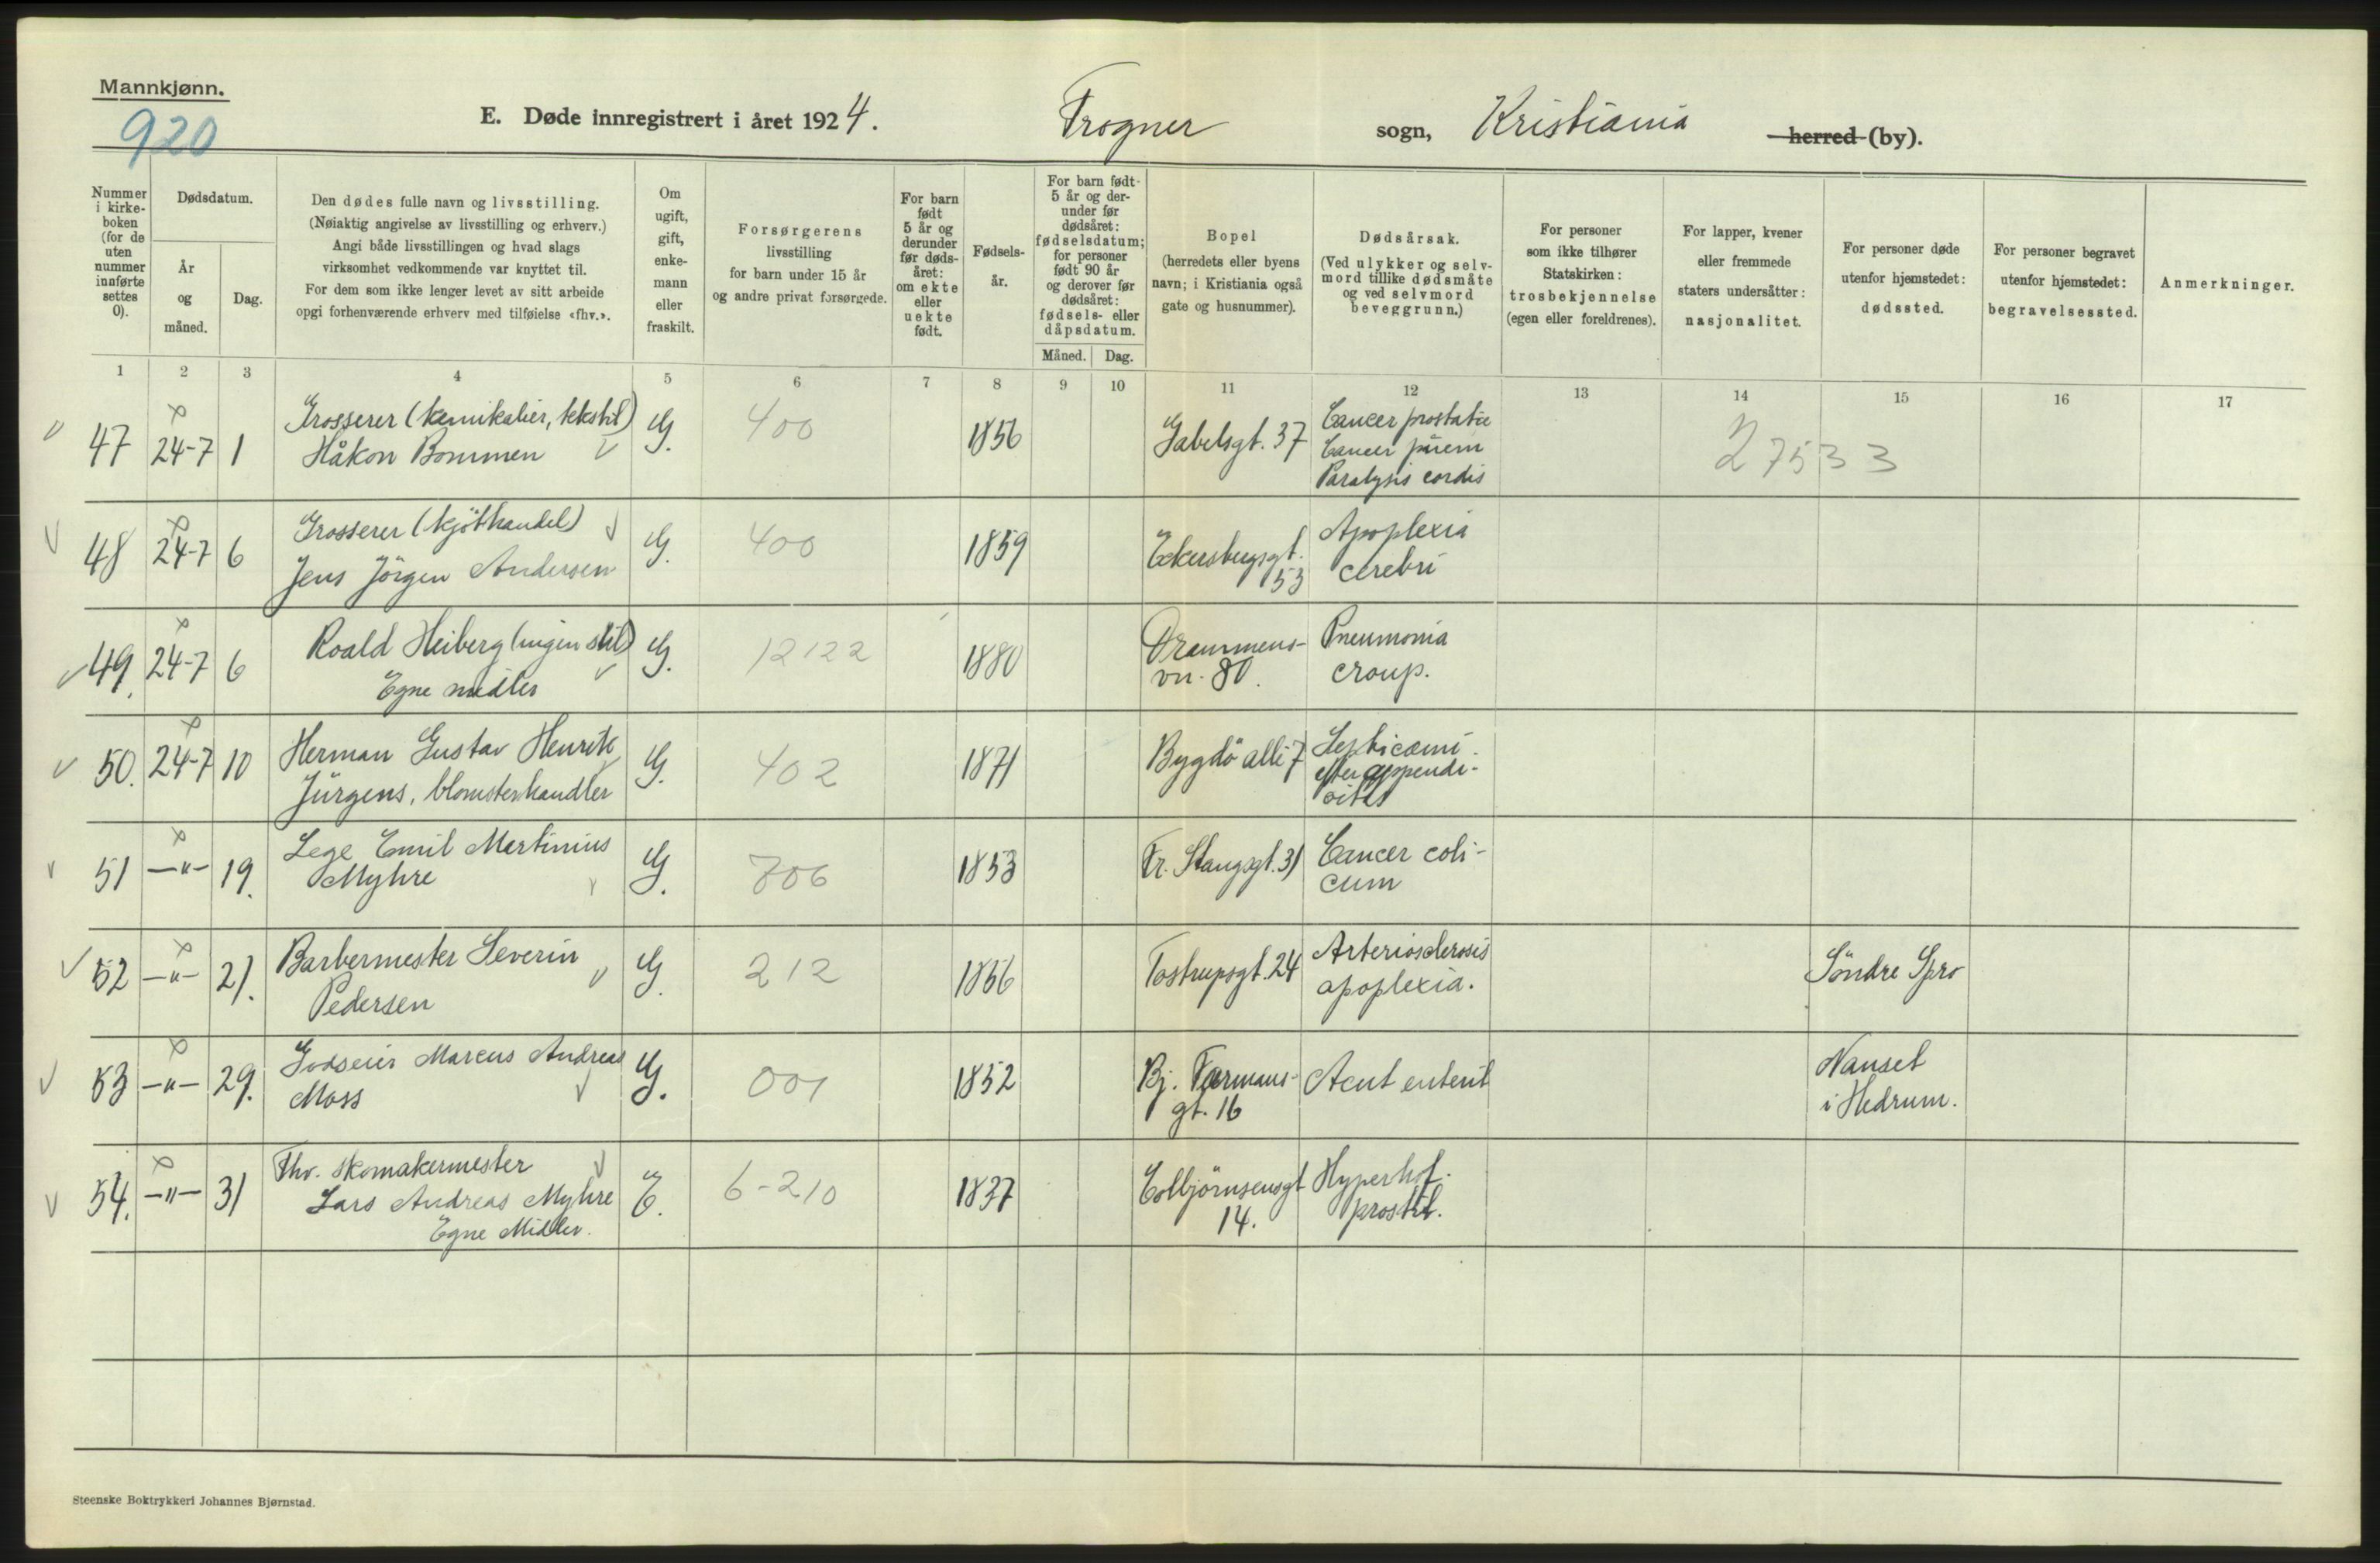 Mannkjønn.
920
E. Døde innregistrert i året 1924.
Frogner sogn, Kristiania herred (by).
Nummer i kirkeboken (for de uten nummer innførte settes 0).
Dødsdatum.
År og måned.
Dag.
Den dødes fulle navn og livsstilling.
(Nøiaktig angivelse av livsstilling og erhverv.)
Angi både livsstillingen og hvad slags
virksomhet vedkommende var knyttet til.
For dem som ikke lenger levet av sitt arbeide
opgi forhenværende erhverv med tilføielse «fhv.».
Om ugift, gift, enkemann eller fraskilt.
Forsørgerens
livsstilling
for barn under 15 år
og andre privat forsørgede.
For barn født 5 år og derunder før dødsåret: om ekte eller uekte født.
Fødselsår.
For barn født 5 år og derunder før dødsåret: fødselsdatum; for personer født 90 år og derover før dødsåret: fødsels- eller dåpsdatum.
Måned. Dag.
Bopel
(herredets eller byens
navn; i Kristiania også
gate og husnummer).
Dødsårsak.
(Ved ulykker og selvmord tillike dødsmåte og ved selvmord beveggrunn.)
For personer
som ikke tilhører
Statskirken:
trosbekjennelse
(egen eller foreldrenes).
For lapper, kvener
eller fremmede
staters undersåtter:
nasjonalitet.
For personer døde
utenfor hjemstedet:
dødssted.
For personer begravet
utenfor hjemstedet:
begravelsessted.
Anmerkninger.
1 2 3 4 5 6 7 8 9 10 11 12 13 14 15 16 17
47 24-7 1 Grosserer (kemikalier, tekstil) Håkon Bommen G. 400 1856 Gabelsgt. 37 Cancer prostatæ Cancer Paralysis cordis 27533
48 24-7 6 Grosserer (kjöthandel) Jens Jörgen Andersen G. 400 1859 Eckersbergsgt. 53 Apoplexia cerebri
49. 24-7 6 Roald Heiberg (ingen stil) Egne midler G. 12122 1880 Drammensvn. 80. Pneumonia croup.
50. 24-7 10 Herman Gustav Henrik Jürgens, blomsterhandler G. 402 1871 Bygdö allé 7 Septicæmi efter appendicitis
51 —"— 19. Lege Emil Martinius Myhre G. 706 1853 Fr. Stangsgt. 31 Cancer colicum
52 —"— 21. Barbermester Severin Pedersen G. 212 1856 Tostrupsgt. 24 Arteriosclerosis apoplexia. Söndre Spro
53 —"— 29. Godseier Marcus Andreas Moss G. 001 1852 Bj. Farmansgt. 16 Acut enterit Nanset i Hedrum.
54. —"— 31 Fhv. skomakermester Lars Andreas Myhre Egne Midler. E. 6-210 1837 Colbjörnsensgt 14. prostat.
Steenske Boktrykkeri Johannes Bjørnstad.